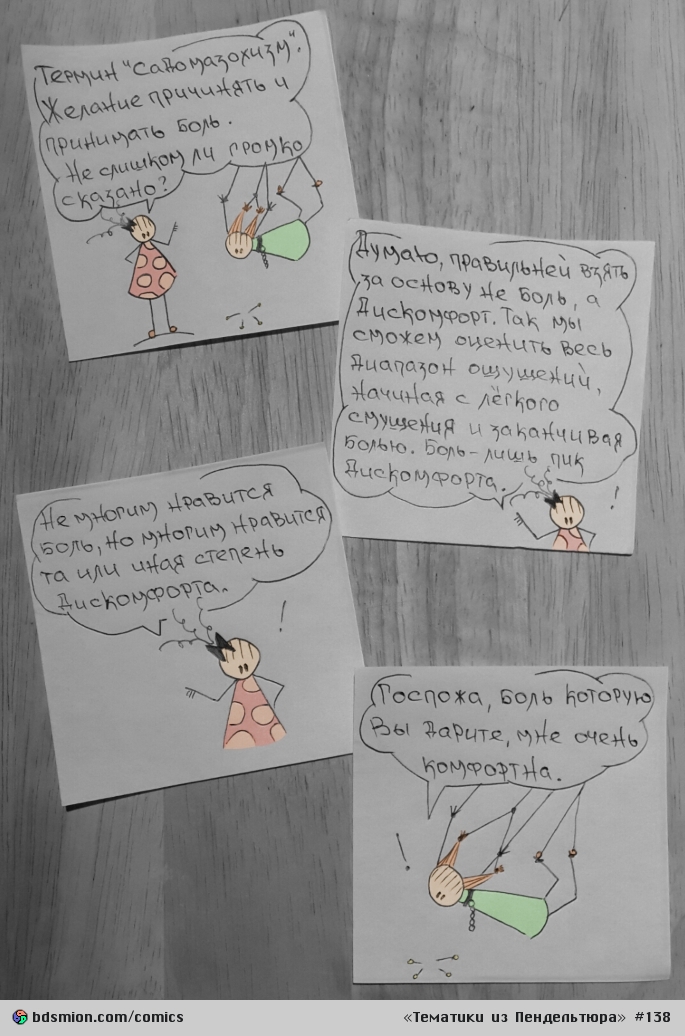 Термин "Садомазохизм".
Желание причинять и
принимать боль.
Не слишком ли громко
сказано?
Думаю, правильней взять
за основу не боль, а
дискомфорт. Так мы
сможем оценить весь
диапазон ощущений,
начиная с лёгкого
смущения и заканчивая
болью. Боль - лишь пик
дискомфорта.
!
Не многим нравится
боль, но многим нравится
та или иная степень
дискомфорта.
!
Госпожа, боль которую
Вы дарите, мне очень
комфортна.
!
bdsmion.com/comics
«Тематики из Пендельтюра» #138